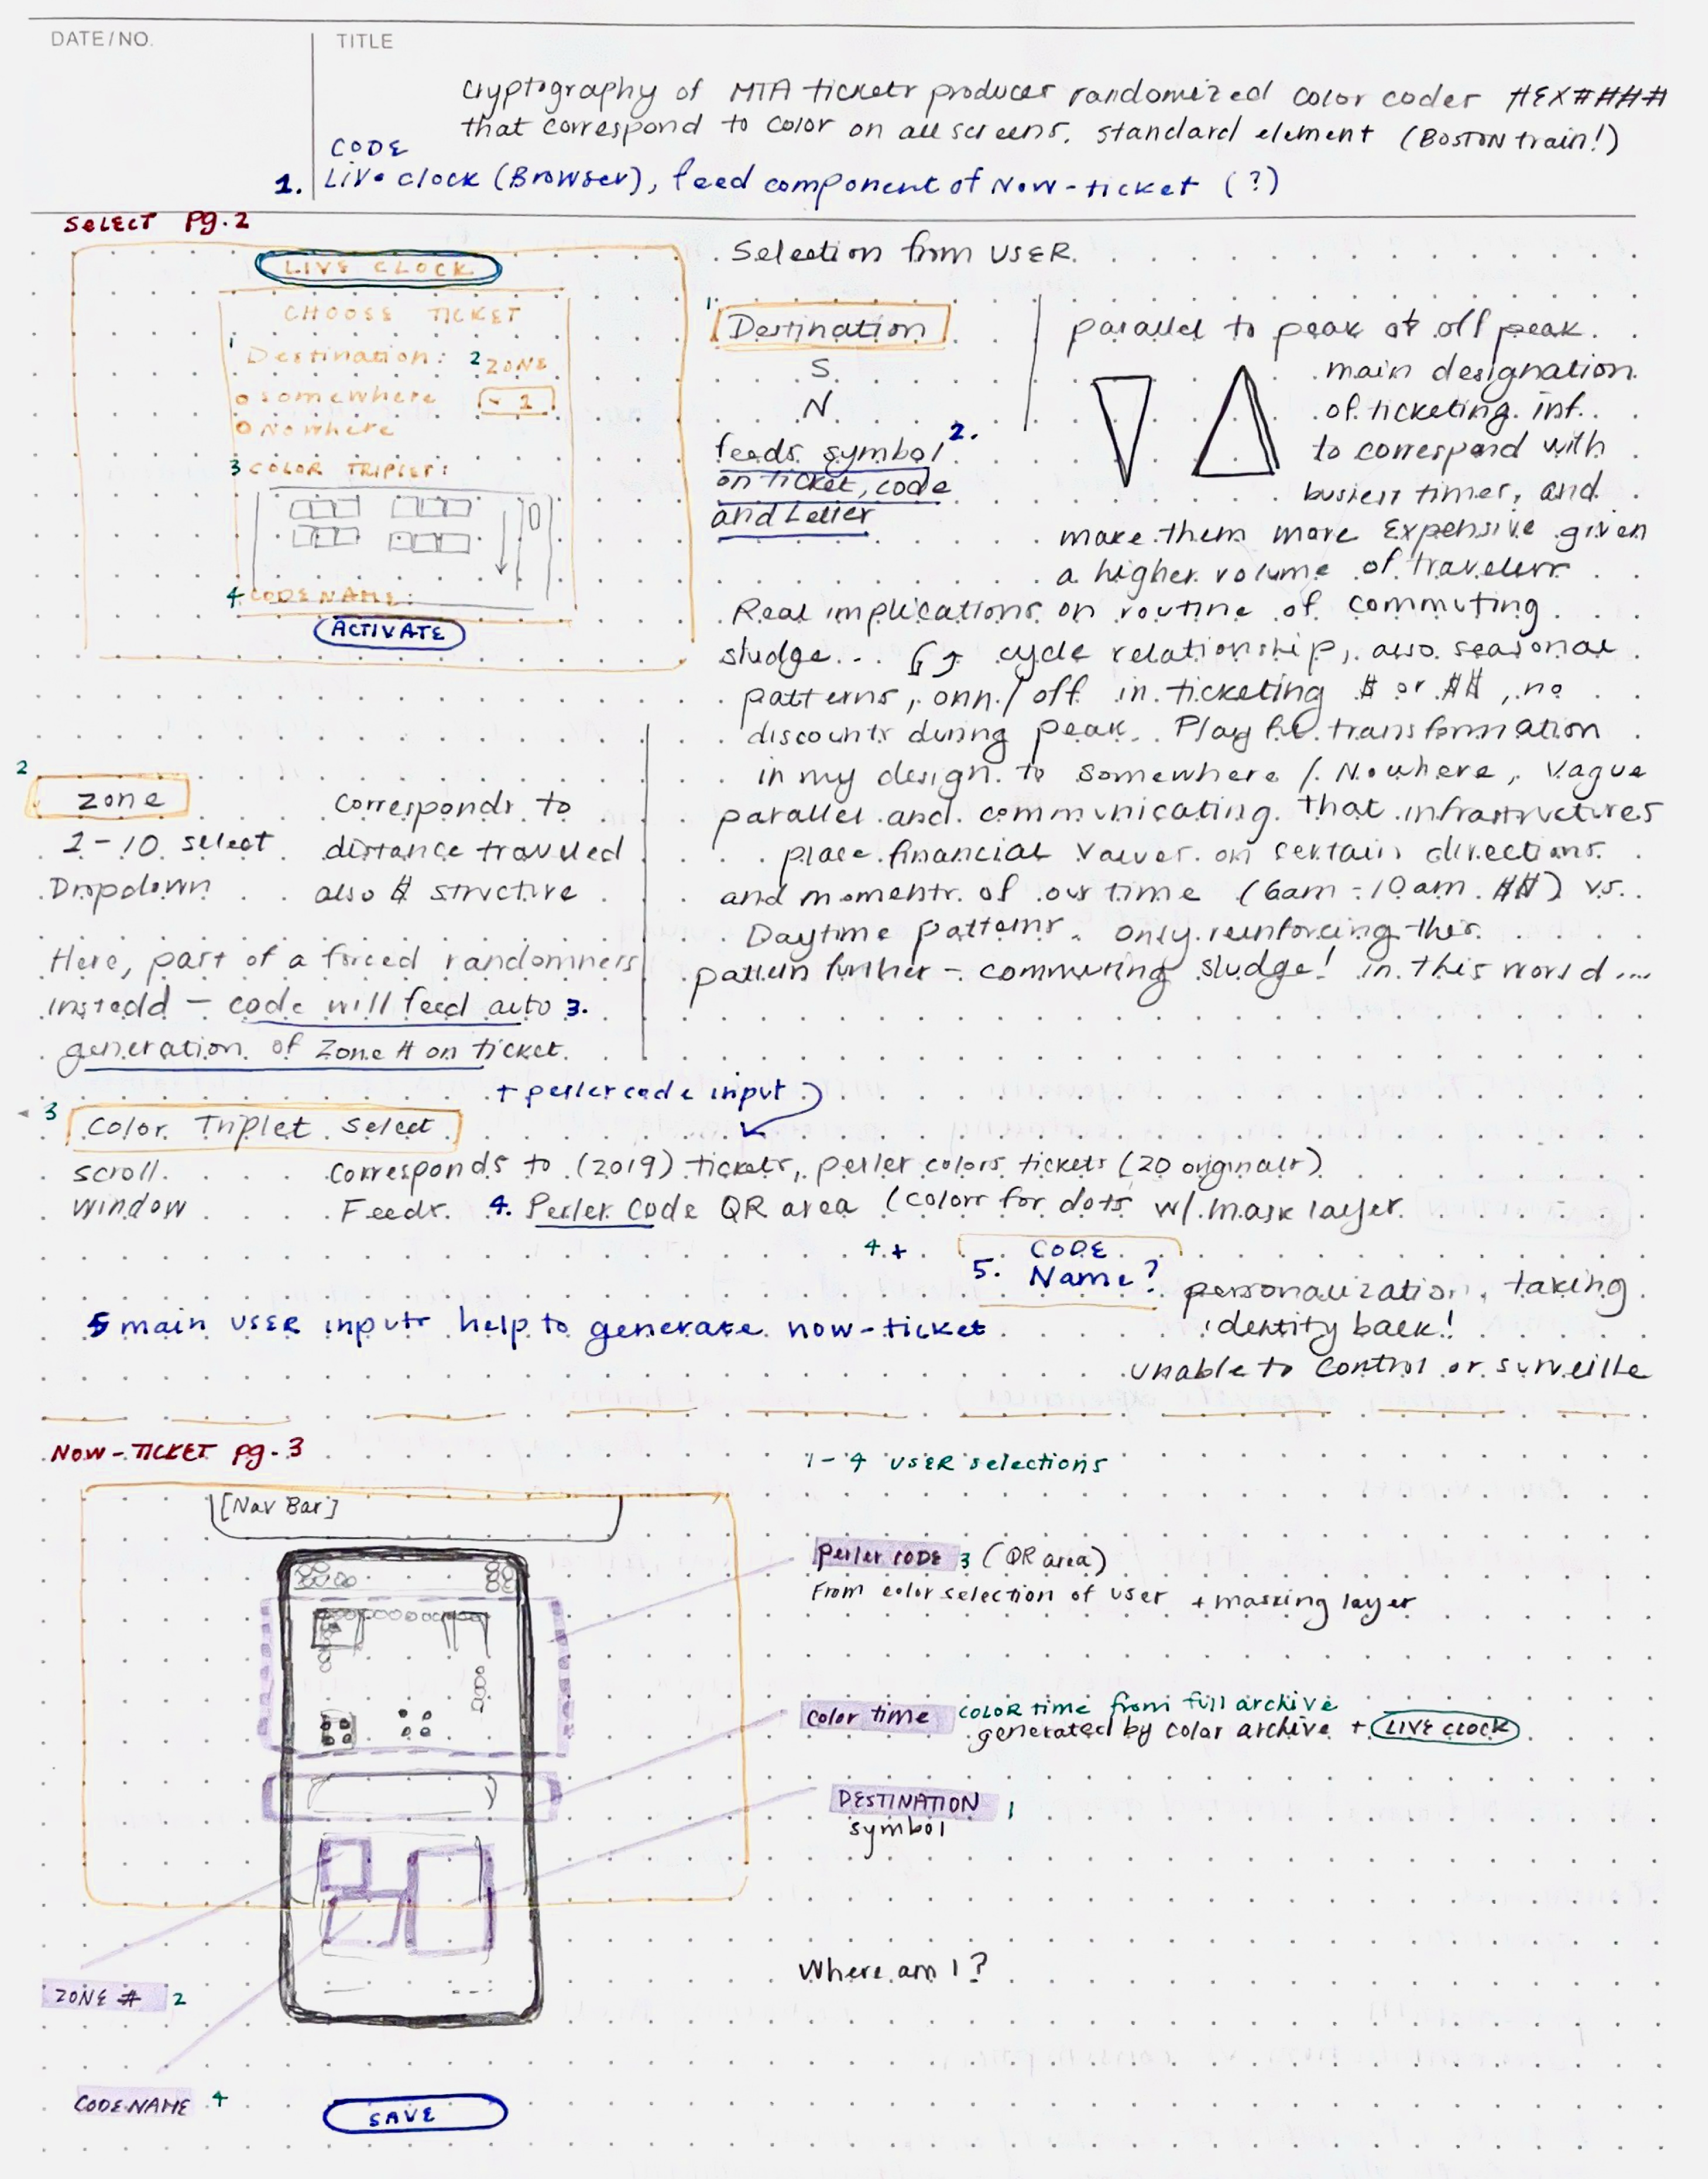 DATE/NO.
TITLE
Cryptography of MTA tickets produces randomized color codes HEX####
that correspond to color on all screens. standard element (BOSTON train!)
CODE
1. Live clock (Browser), feed component of Now-ticket (?)
SELECT pg.2
LIVE CLOCK
CHOOSE TICKET
1 Destination: 2 ZONE
somewhere 1
Nowhere
3 COLOR TRIPLET:
4 CODENAME:
ACTIVATE
Selection from USER.
1. Destination
S
N
feeds symbol 2.
on ticket, code
and Letter
parallel to peak or off peak.
main designation
of ticketing inf.
to correspond with
busiest times, and
make them more Expensive given
a higher volume of travelers
Real implications on routine of commuting
sludge... cycle relationship, also seasonal
patterns, onn/off in ticketing $ or $$, no
discounts during peak. Playful transformation
in my design to Somewhere / Nowhere, Vague
parallel and communicating that infrastructures
place financial values on certain directions
and moments of our time (6am-10am $$) vs.
Daytime patterns. only reinforcing this
pattern further - commuting sludge! in this world...
2
Zone
1-10 select
Dropdown
corresponds to
distance traveled
also $ structure
Here, part of a forced randomness
instedd - code will feed auto 3.
generation of Zone # on ticket.
+ perler code input
3 Color Triplet Select
scroll
window
corresponds to (2019) tickets, perler colors tickets (20 originals)
Feeds 4. Perler Code QR area (colors for dots w/ mask layer
4.+
5. CODE
Name?
personalization, taking
identity back!
unable to control or surveille
5 main USER inputs help to generate now-ticket
NOW-TICKET pg-3
1-4 USER selections
[Nav Bar]
perler CODE 3 (QR area)
From color selection of user + masking layer
color time COLOR time from full archive
generated by color archive + LIVE CLOCK
DESTINATION 1
symbol
Where am I?
ZONE # 2
CODENAME 4
SAVE